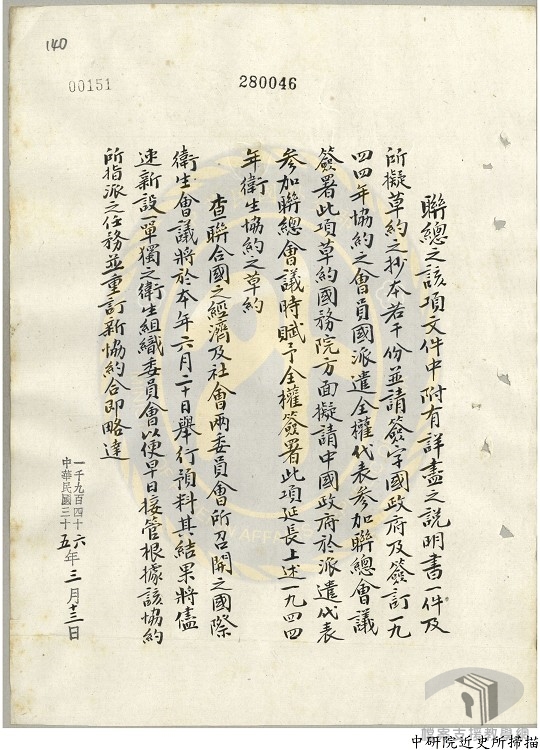 140
00151
280046
聯總之該項文件中附有詳盡之說明書一件及
所擬草約之抄本若干份並請簽字國政府及簽訂一九
四四年協約之會員國派遣全權代表參加聯總會議
簽署此項草約國務院方面擬請中國政府於派遣代表
參加聯總會議時賦予全權簽署此項延長上述一九四四
年衛生協約之草約
查聯合國之經濟及社會兩委員會所召開之國際
衛生會議將於本年六月二十日舉行預料其結果將儘
速新設一單獨之衛生組織委員會以便早日接管根據該協約
所指派之任務並重訂新協約合即略達
一千九百四十六
中華民國三十五年三月十三日
檔案支援教學網
中研院近史所掃描